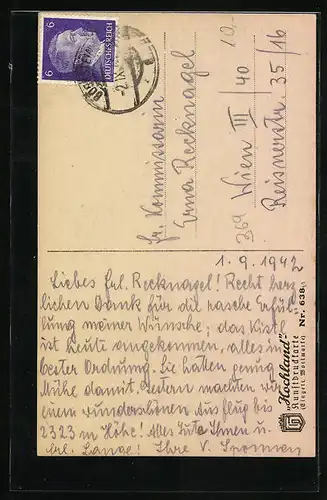 6
DEUTSCHES REICH
6
10,-
Fr. Kommissarin
Erna Recknagel
Wien III/40
Reisnerstr. 35/16
369
1.9.1942
Liebes Frl. Recknagel! Recht herz-
lichen Dank für die rasche Erfül-
lung meiner Wünsche; das Kistl
ist heute angekommen, alles in
bester Ordnung. Sie hatten genug
Mühe damit. Gestern machten wir
einen wunderschönen Ausflug bis
2323 m Höhe! Alles Gute Ihnen u.
Frl. Lange! Ihre V.
„Hochland"
Kunstdruckkarte
(Gesetzl. Wortmarke)
Nr. 638